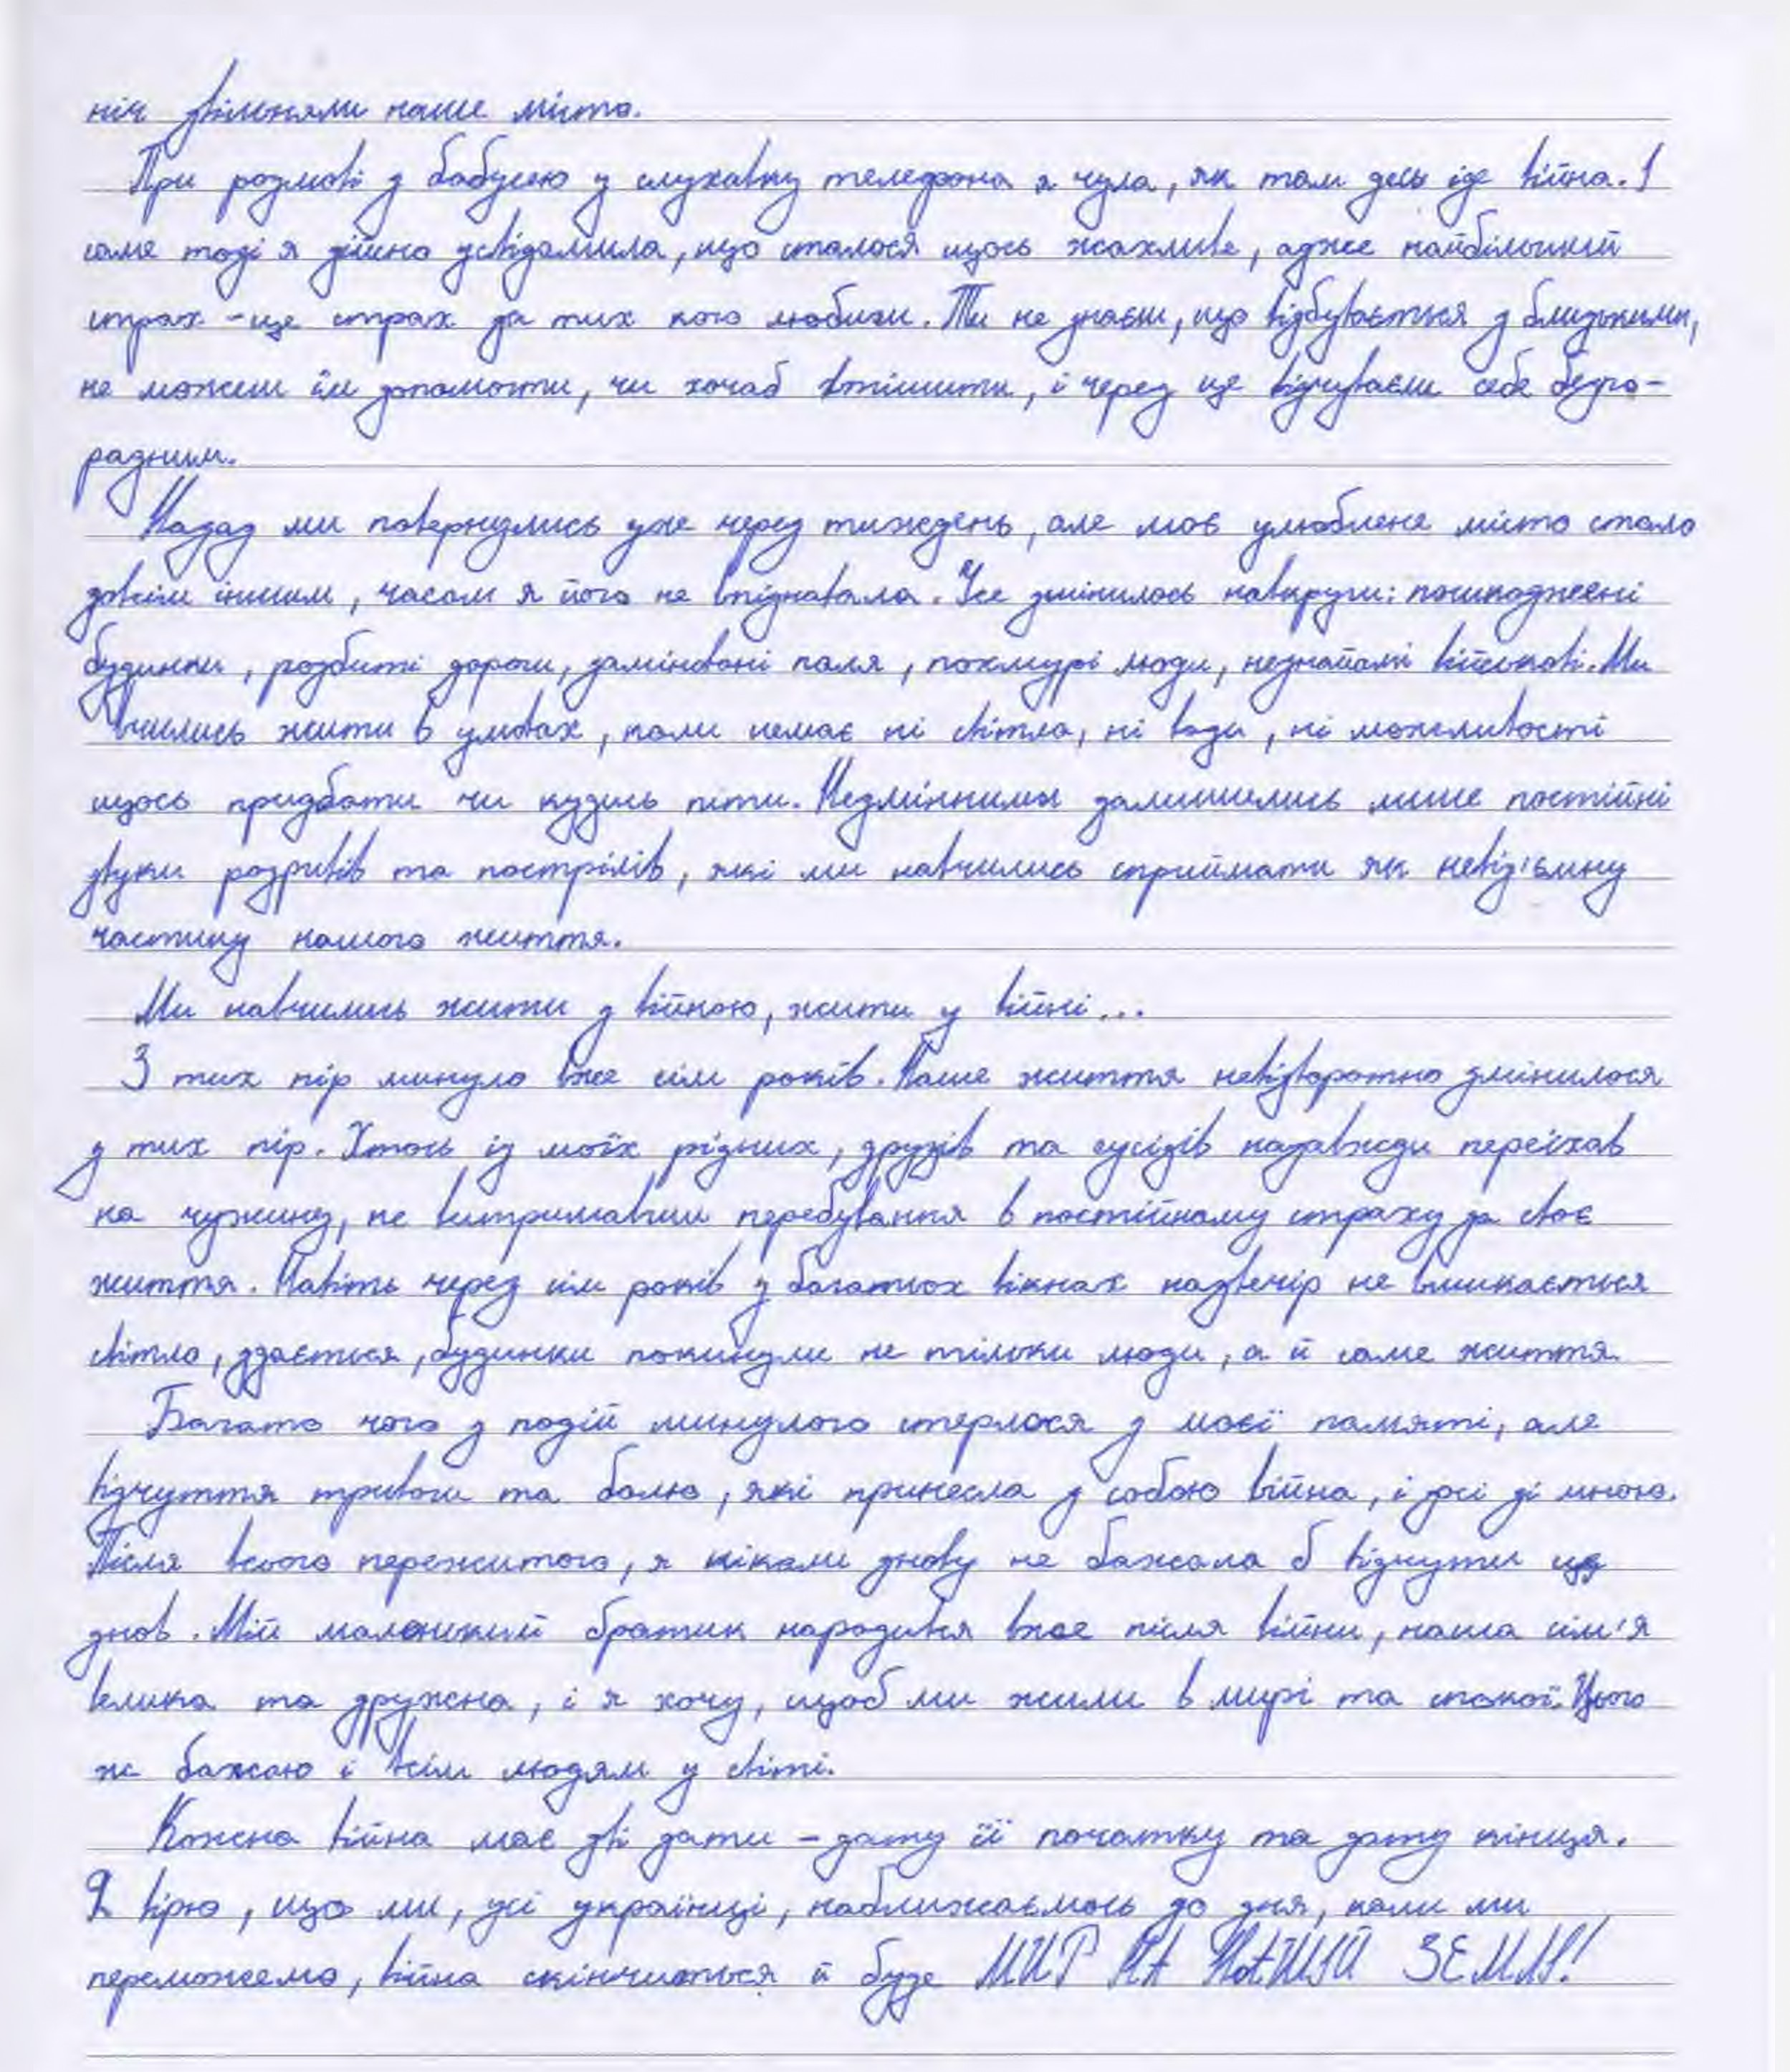 ніч звільняли наше місто.
При розмові з бабусею у слухавку телефона я чула, як там десь іде війна. І
саме тоді я дійсно усвідомила, що сталося щось жахливе, адже найбільший
страх – це страх за тих кого любиш. Ти не знаєш, що відбувається з близькими,
не можеш їм допомогти, чи хочаб втішити, і через це відчуваєш себе безпо-
радним.
Назад ми повернулись уже через тиждень, але моє улюблене місто стало
зовсім іншим, часом я його не впізнавала. Усе змінилось навкруги: пошкоджені
будинки, розбиті дороги, заміновані поля, похмурі люди, незнайомі військові. Ми
вчились жити в умовах, коли немає ні світла, ні води, ні можливості
щось придбати чи кудись піти. Незмінними залишились лише постійні
звуки розривів та пострілів, які ми навчились сприймати як невід'ємну
частину нашого життя.
Ми навчились жити з війною, жити у війні...
З тих пір минуло вже сім років. Наше життя невідворотно змінилося
з тих пір. Хтось із моїх рідних, друзів та сусідів назавжди переїхав
на чужину, не витримавши перебування в постійному страху за своє
життя. Навіть через сім років у багатьох вікнах надвечір не вмикається
світло, здається, будинки покинули не тільки люди, а й саме життя.
Багато чого з подій минулого стерлося з моєї памяті, але
відчуття тривоги та болю, які принесла з собою війна, і досі зі мною.
Після всього пережитого, я ніколи знову не бажала б відчути це
знов. Мій маленький братик народився вже після війни, наша сім'я
велика та дружна, і я хочу, щоб ми жили в мирі та спокої. Цього
ж бажаю і всім людям у світі.
Кожна війна має дві дати – дату її початку та дату кінця.
Я вірю, що ми, усі українці, наближаємось до дня, коли ми
переможемо, війна скінчиться й буде МИР НА НАШІЙ ЗЕМЛІ!